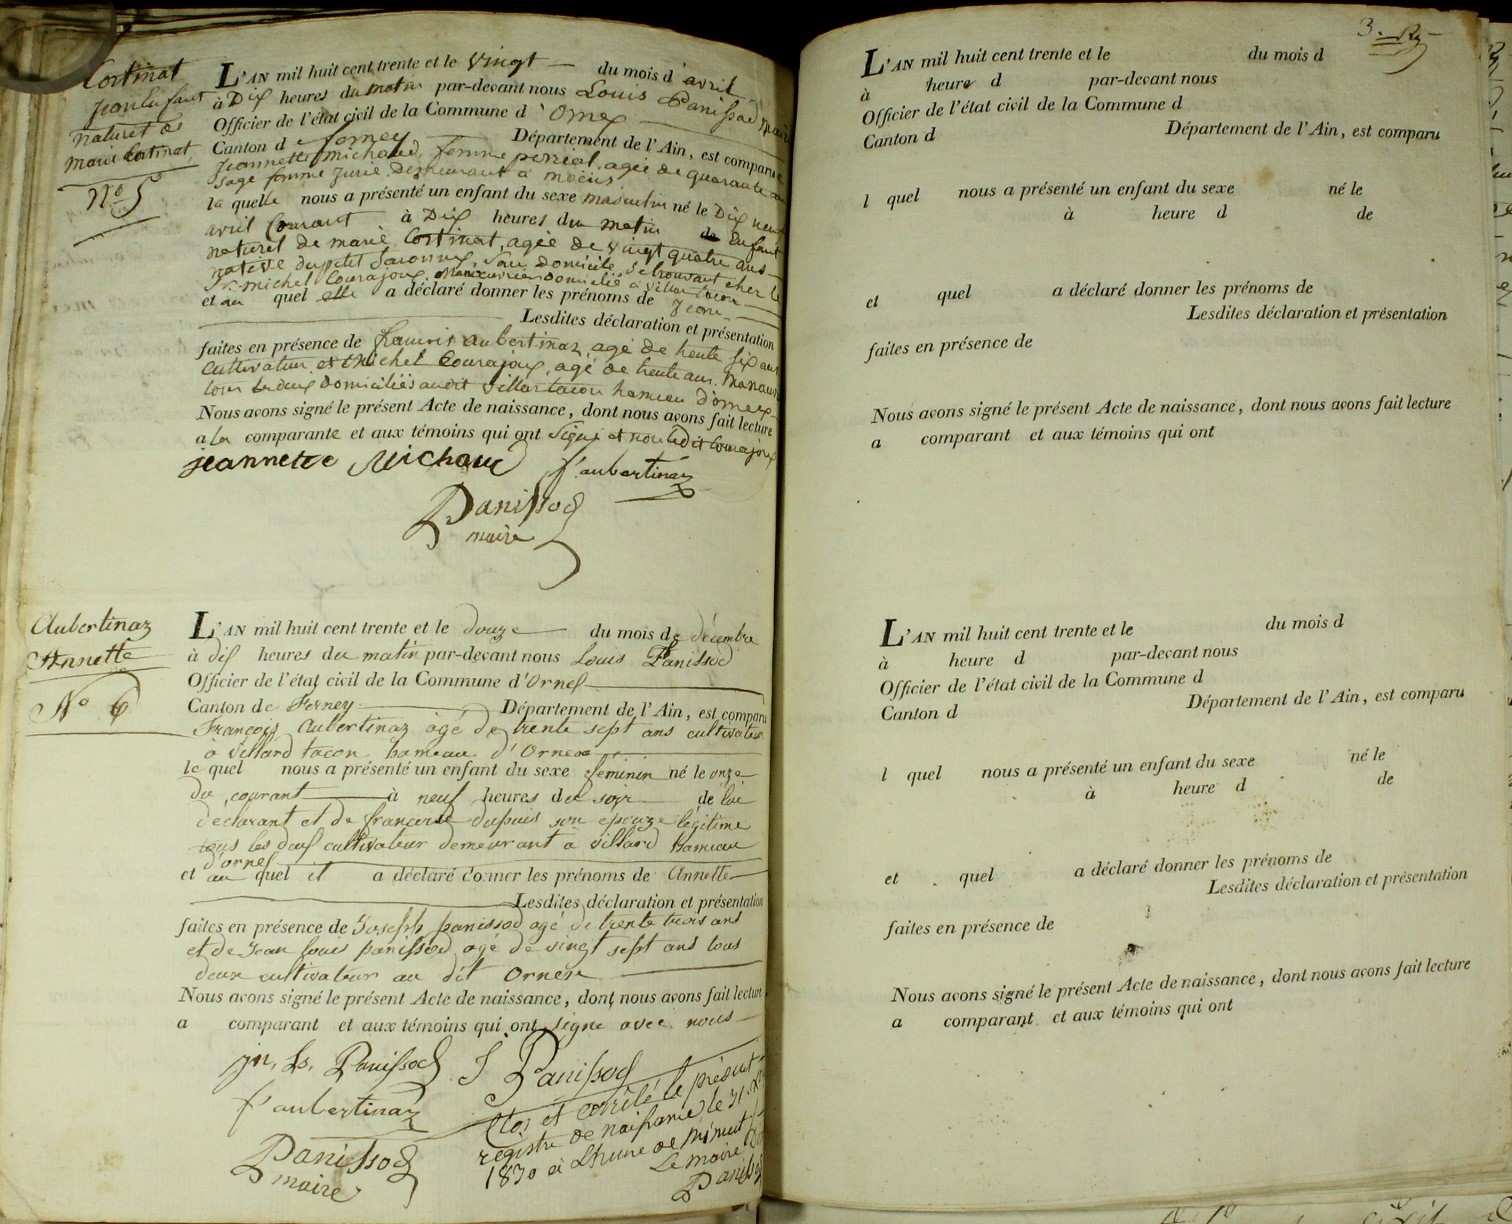 Cortinat
Jean Enfant
naturel de
marie Cortinat
N.º 5
L'AN mil huit cent trente et le vingt du mois d'avril
à Dix heures du matin par-devant nous Louis Panissod maire
Officier de l'état civil de la Commune d'Ornex
Canton d ferney Département de l'Ain, est comparue
Jeannette Michaud, femme agée de quarante
sage femme Jurée Demeurant à
la quelle nous a présenté un enfant du sexe masculin né le Dix neuf
avril Courant à Dix heures du matin de Enfant
naturel de marie Cortinat, agée de vingt quatre ans
native du petit Saconnex, Sans Domicile, Se trouvant chez le
Sr. michel Courajoux, Domicilié à villar tacon
et au quel elle a déclaré donner les prénoms de Jean
Lesdites déclaration et présentation
faites en présence de francois aubertinaz, agé de trente six ans
Cultivateur et Michel Courajoux, agé de trente ans, manœuvre
tous les deux Domiciliés audit villar tacon hameau D'ornex
Nous avons signé le présent Acte de naissance, dont nous avons fait lecture
a la comparante et aux témoins qui ont Signé et non ledit Courajoux
jeannette Michaud f. aubertinaz
Panissod
maire
Aubertinaz
Annette
N.º 6
L'AN mil huit cent trente et le douze du mois de décembre
à dix heures du matin par-devant nous Louis Panissod
Officier de l'état civil de la Commune d'Ornex
Canton de Ferney Département de l'Ain, est comparu
François Aubertinaz agé de trente sept ans cultivateur
à villard tacon hameau d'Ornex
le quel nous a présenté un enfant du sexe féminin né le onze
du courant à neuf heures du soir de lui
déclarant et de françoise dupuis son épouze légitime
tous les deux cultivateur demeurant à villard hameau
d'ornex
et au quel il a déclaré donner les prénoms de Annette
Lesdites déclaration et présentation
faites en présence de Joseph panissod agé de trente trois ans
et de Jean Louis panissod agé de vingt sept ans tous
deux cultivateur au dit Ornex
Nous avons signé le présent Acte de naissance, dont nous avons fait lecture
a comparant et aux témoins qui ont signé avec nous
jn. Ls. Panissod J Panissod
f. aubertinaz
Panissod
maire
Clos et arrêté le présent
registre de naissance le 31 Xbre
1830 à L'heure de Minuit
Le maire
Panissod
3.
L'AN mil huit cent trente et le du mois d
à heure d par-devant nous
Officier de l'état civil de la Commune d
Canton d Département de l'Ain, est comparu
l quel nous a présenté un enfant du sexe né le
à heure d de
et quel a déclaré donner les prénoms de
Lesdites déclaration et présentation
faites en présence de
Nous avons signé le présent Acte de naissance, dont nous avons fait lecture
a comparant et aux témoins qui ont
L'AN mil huit cent trente et le du mois d
à heure d par-devant nous
Officier de l'état civil de la Commune d
Canton d Département de l'Ain, est comparu
l quel nous a présenté un enfant du sexe né le
à heure d de
et quel a déclaré donner les prénoms de
Lesdites déclaration et présentation
faites en présence de
Nous avons signé le présent Acte de naissance, dont nous avons fait lecture
a comparant et aux témoins qui ont